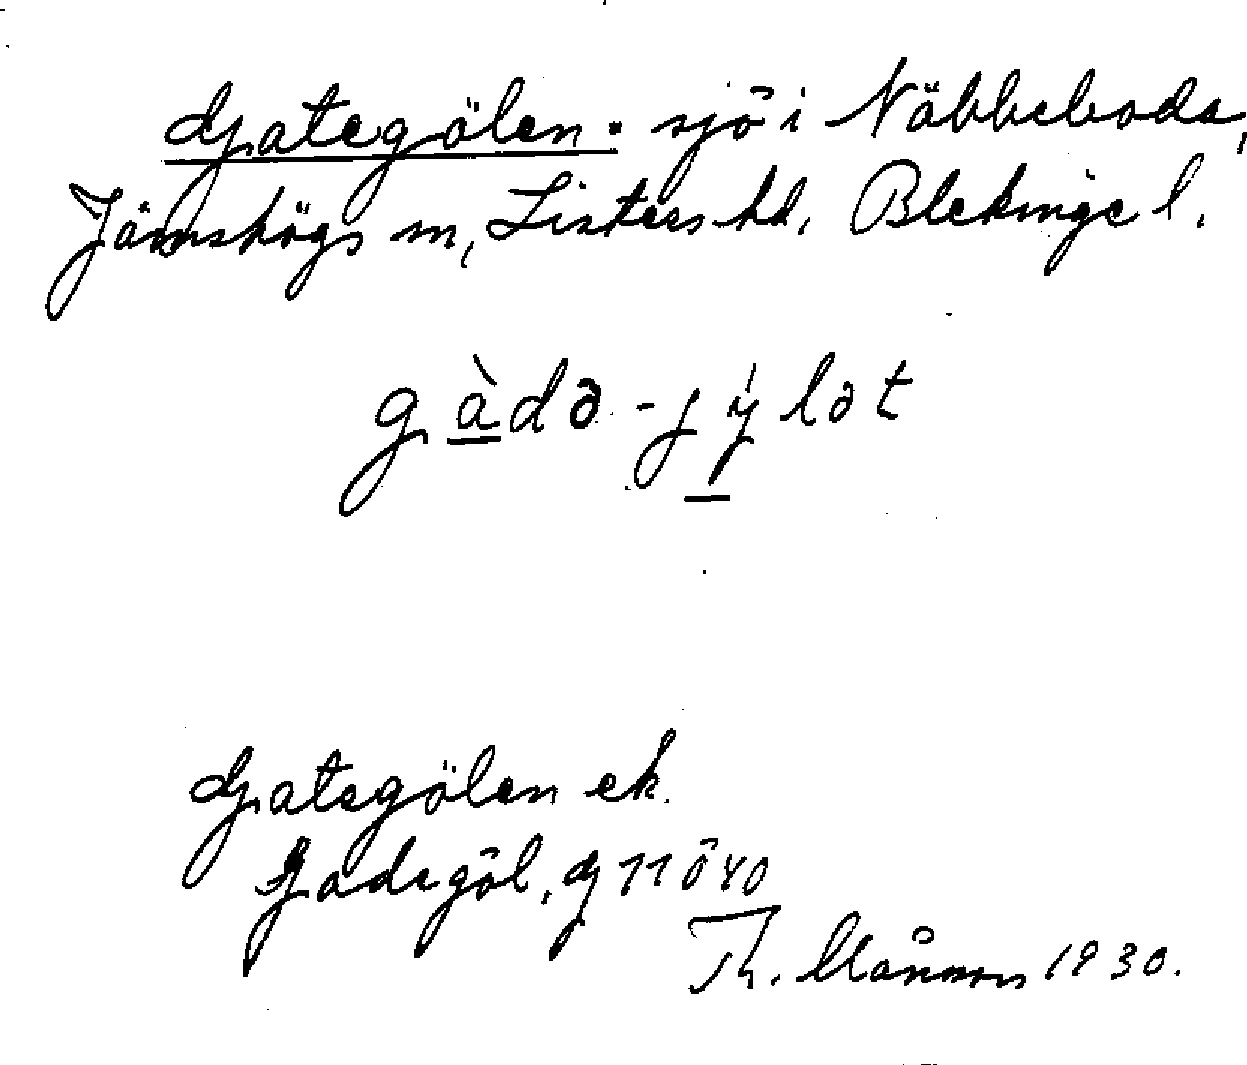 Gategölen. sjö i Näbbeboda,
Jämshögs sn, Listers hd, Blekinge l.
gàdə-jýlət
Gategölen ek.
Gadegöl, G 11 Ö 40
Th. Månsson 1930.